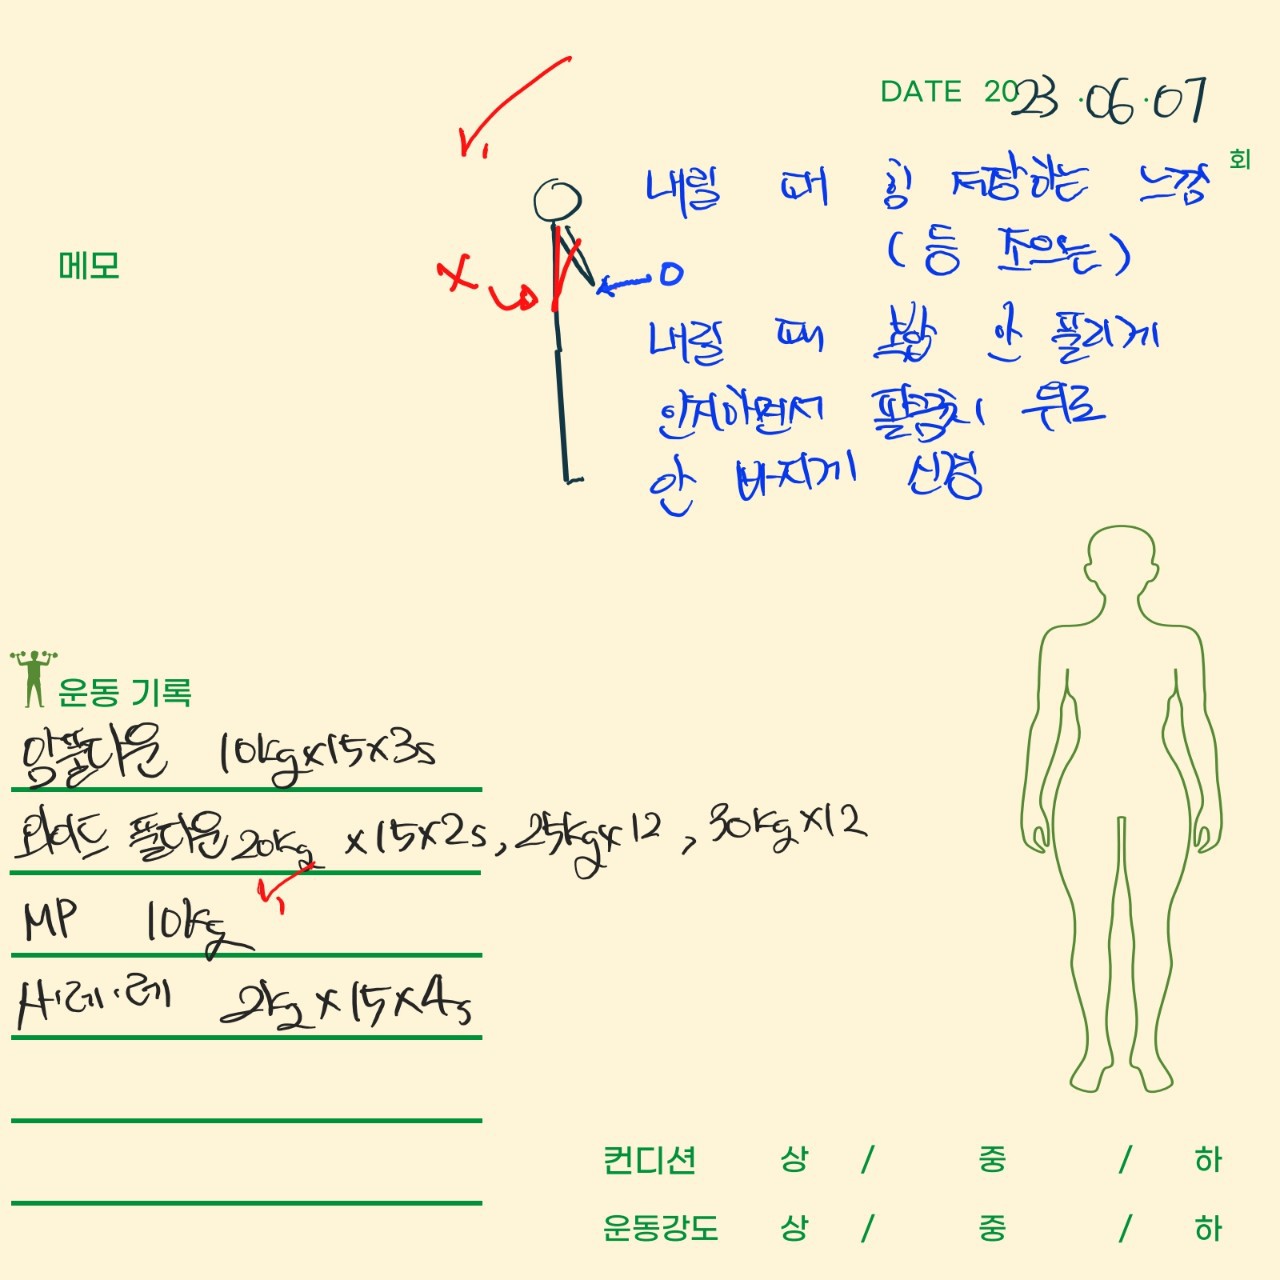 DATE 2023.06.07
회
내릴 때 힘 저당하는 느낌
(등 조으는)
메모
X
O
내릴 때 복합 안 풀리게
인지하면서 팔꿈치 뒤로
안 빠지게 신경
운동 기록
암풀다운 10kgx15x3s
와이드 풀다운 20kg x15x2s, 25kgx12, 30kgx12
MP 10kg
사.레.레 2kgx15x4s
컨디션 상 / 중 / 하
운동강도 상 / 중 / 하